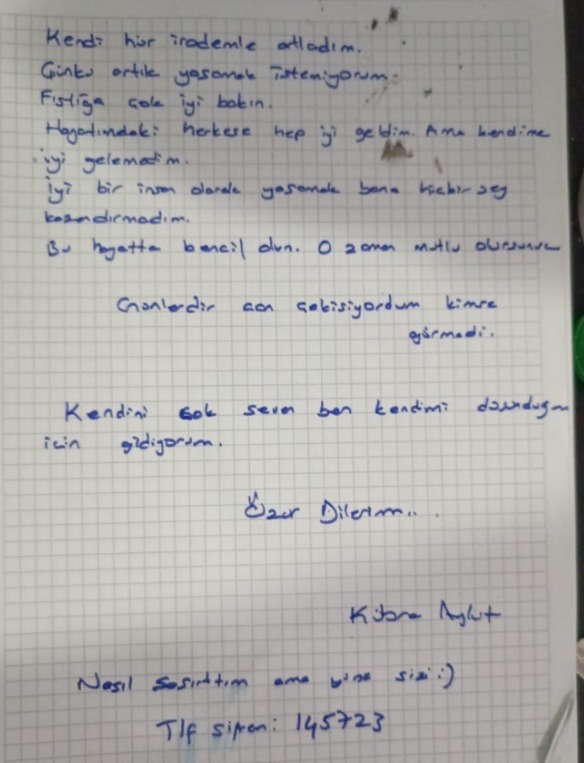 Kendi hür irademle atladım.
Çünkü artık yaşamak istemiyorum.
Fıstığa çok iyi bakın.
Hayatımdaki herkese hep iyi geldim. Ama kendime
iyi gelemedim.
İyi bir insan olarak yaşamak bana hiçbir şey
kazandırmadım.
Bu hayatta bencil olun. O zaman mutlu olursunuz
Günlerdir acı çekiyordum kimse
görmedi.
Kendini çok seven ben kendimi düşündüğüm
için gidiyorum.
Özür Dilerim...
Kübra Aykut
Nasıl şaşırttım ama yine sizi :)
Tlf şifrem: 145723